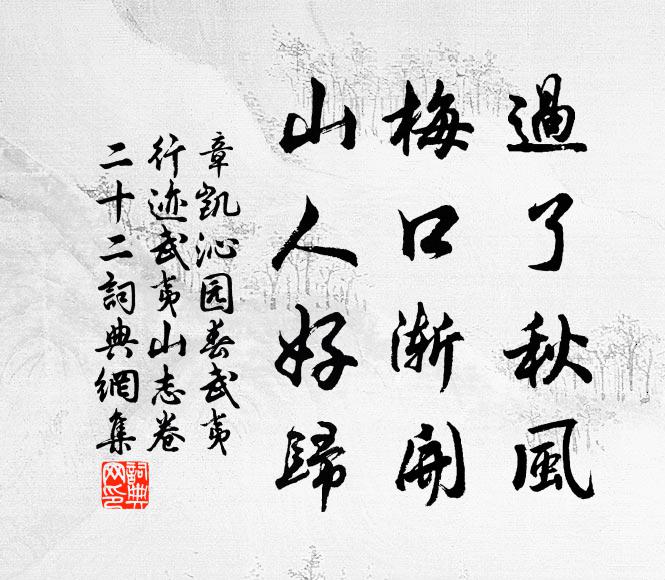 過了秋風
梅口漸開
山人好歸
章凱沁园春武夷
行迹武夷山志卷
二十二詞典網集
詞典
网印